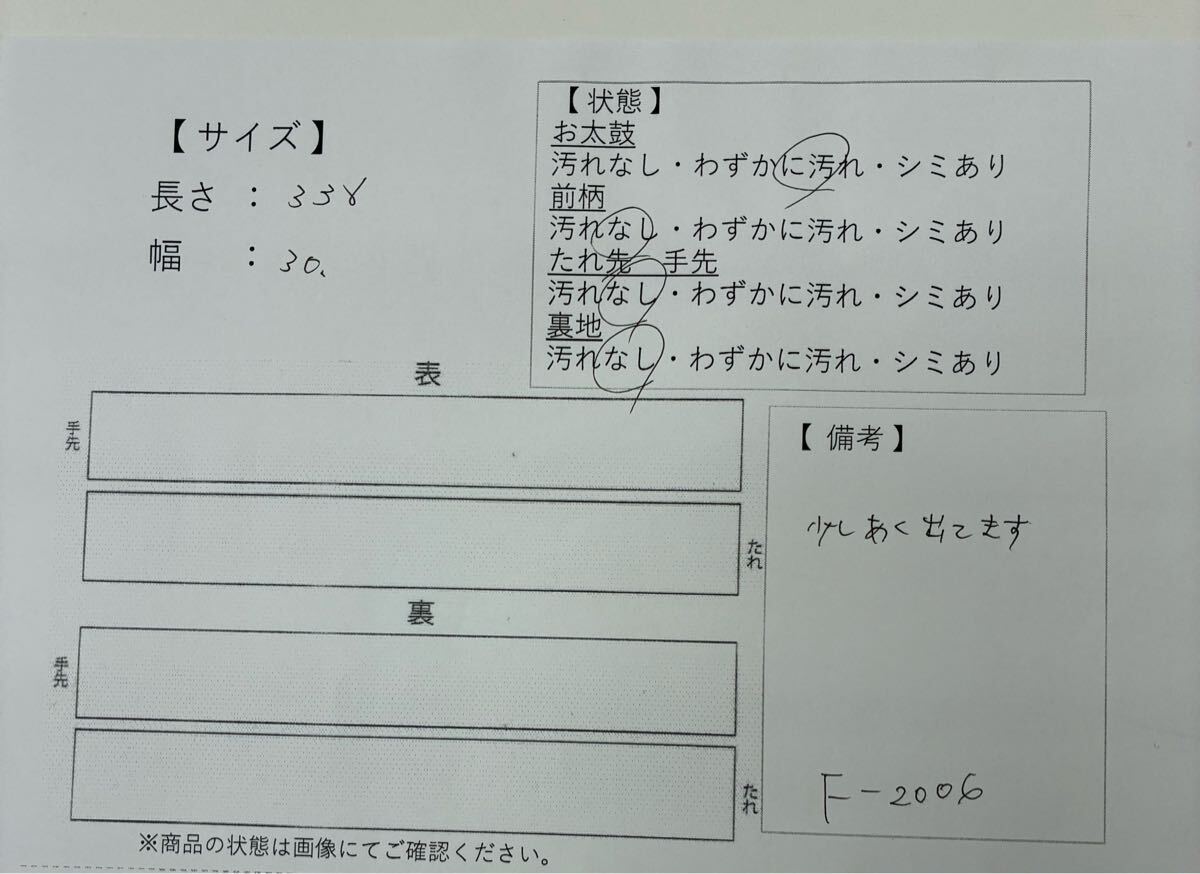 【サイズ】
長さ ： 338
幅 ： 30.
【状態】
お太鼓
汚れなし・わずかに汚れ・シミあり
前柄
汚れなし・わずかに汚れ・シミあり
たれ先 手先
汚れなし・わずかに汚れ・シミあり
裏地
汚れなし・わずかに汚れ・シミあり
表
手先
たれ
裏
手先
たれ
【備考】
少しあく出てます
F-2006
※商品の状態は画像にてご確認ください。